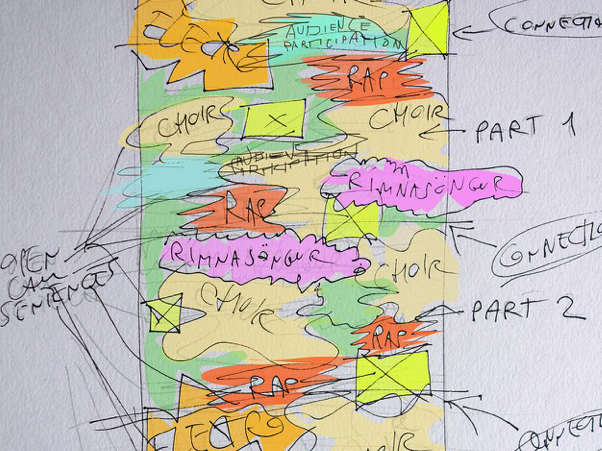 CHOIR
AUDIENCE
PARTICIPATION
CONNECTIO
RAP
CHOIR
CHOIR
PART 1
AUDIENCE
PARTICIPATION
RIMNASÖNGUR
RAP
CONNECTIO
RIMNASÖNGUR
CHOIR
OPEN
CALL
SENTENCES
CHOIR
PART 2
RAP
RAP
CONNECTI
OIR